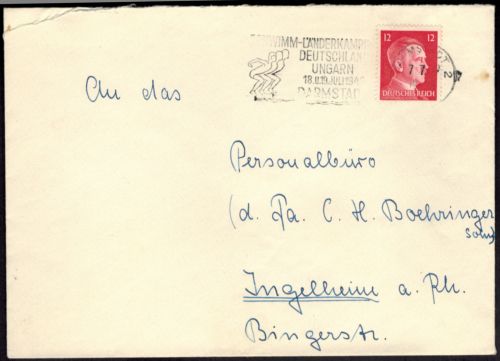 SCHWIMM-LÄNDERKAMPF
DEUTSCHLAND
UNGARN
18.u.19.JULI 194
DARMSTADT
12 12
DEUTSCHES REICH
An das
Personalbüro
(d. Fa. C. H. Boehringer
Sohn)
Ingelheim a. Rh.
Bingerstr.